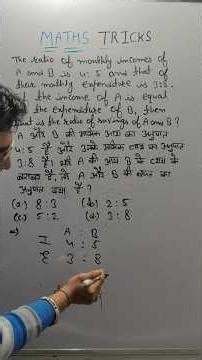 MATHS TRICKS
The ratio of monthly incomes of
A and B is 4:5 and that of
their monthly expenditure is 3:8.
If the income of A is equal
to the expenditure of B, then
what is the ratio of savings of A and B?
A और B की मासिक आय का अनुपात
4:5 है और उनके मासिक व्यय का अनुपात
3:8 है। यदि A की आय B के व्यय के
बराबर है, तो A और B की बचत का
अनुपात क्या है?
(a) 8:3 (b) 2:5
(c) 5:2 (d) 3:8
A : B
I 4 : 5
E 3 : 8